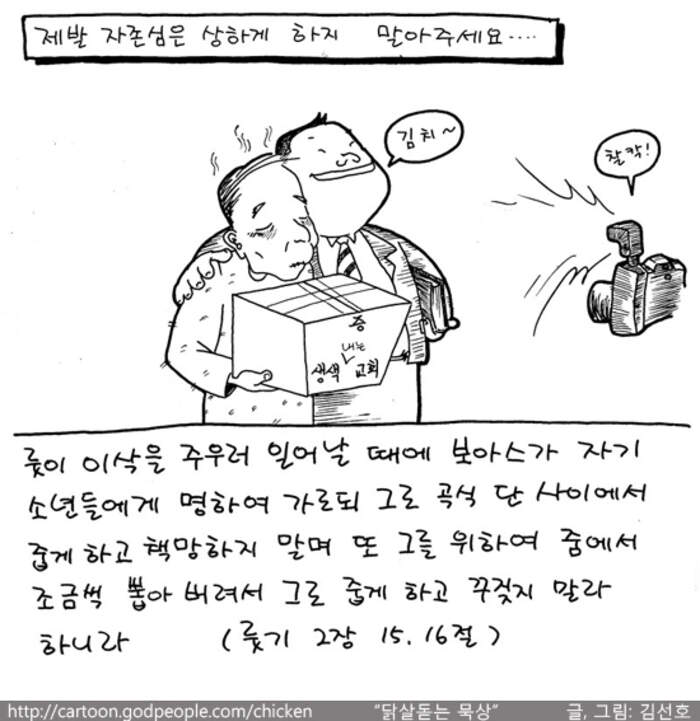 제발 자존심은 상하게 하지 말아주세요....
김치~
찰칵!
증
내는
생색 교회
룻이 이삭을 주우러 일어날 때에 보아스가 자기
소년들에게 명하여 가로되 그로 곡식 단 사이에서
줍게 하고 책망하지 말며 또 그를 위하여 줌에서
조금씩 뽑아 버려서 그로 줍게 하고 꾸짖지 말라
하니라 (룻기 2장 15. 16절)
http://cartoon.godpeople.com/chicken "닭살돋는 묵상" 글, 그림: 김선호